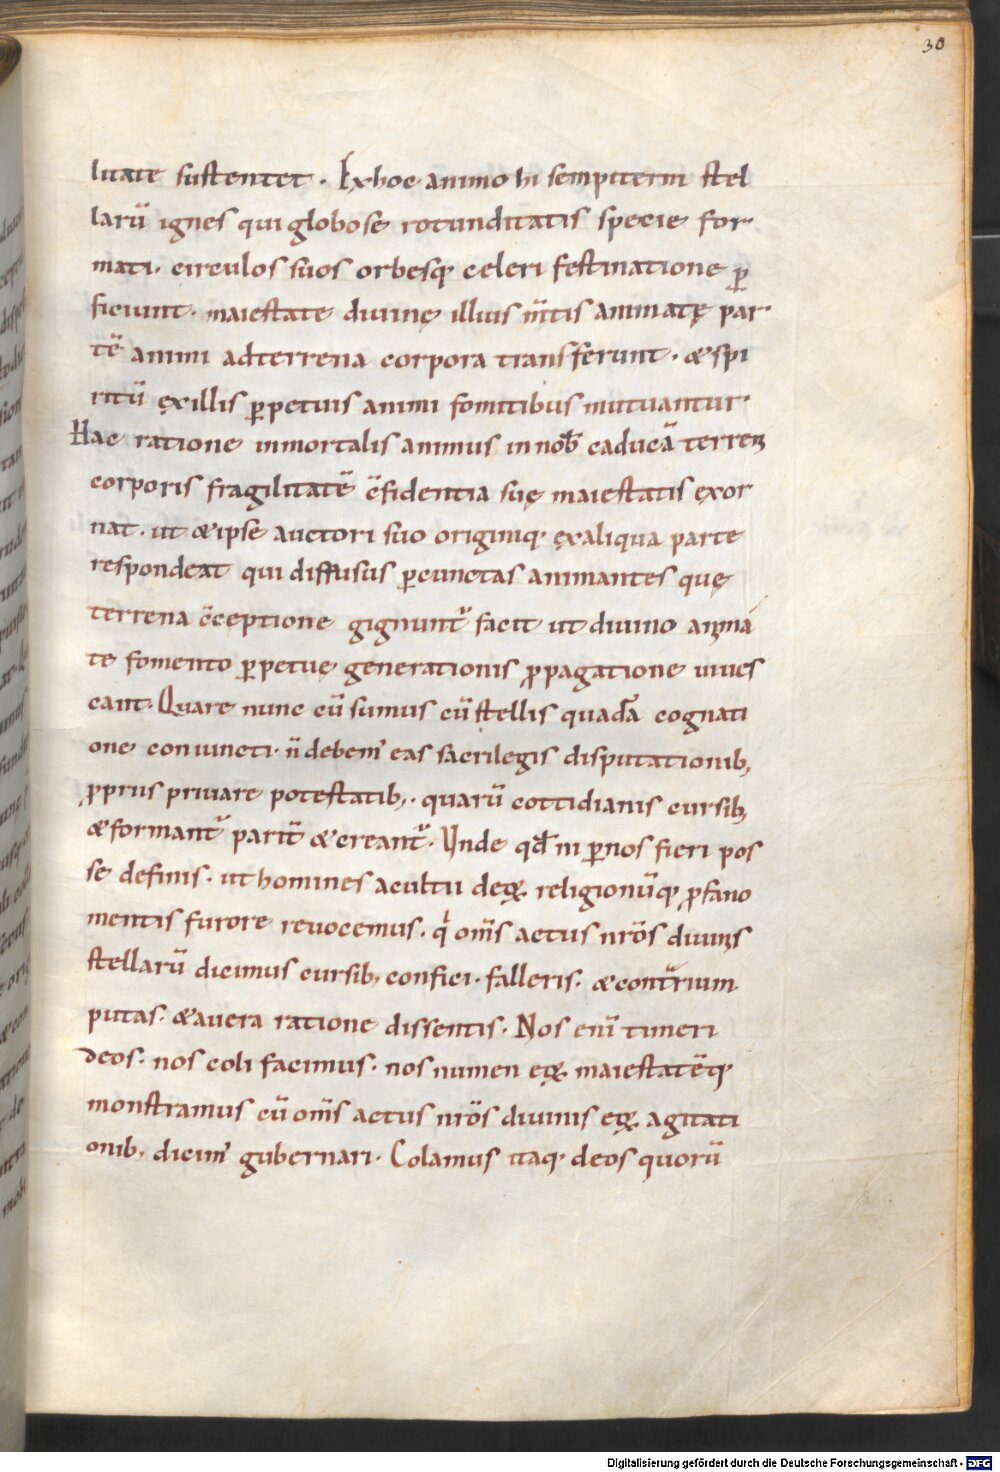 30
litate sustentet. Ex hoc animo hi sempiterni stel
larū ignes qui globosę rotunditatis specie for
mati. circulos suos orbesq; celeri festinatione ꝑ
ficiunt. maiestate divinę illius m̄tis animatę par
tē animi ad terrena corpora transferunt. & spi
ritū ex illis ꝑpetuis animi fomitibus mutuantur.
Hac ratione inmortalis animus in nob̄ caducā terreni
corporis fragilitatē c̄fidentia suę maiestatis exor
nat. ut & ipse auctori suo originiq; ex aliqua parte
respondeat qui diffusus ꝑ cunctas animantes quę
terrena c̄ceptione gignunt᷒ facit ut divino anima
te fomento ꝑpetuę generationis ꝓpagatione vives
cant. Quare nunc cū sumus cū stellis quadā cognati
one coniuncti. n̄ debem᷒ eas sacrilegis disputationib;
ꝓpriis privare potestatib;. quarū cottidianis cursib;
& formant᷒ parit̄ & creant᷒. Unde qd̄ ni ꝑ nos fieri pos
se definis. ut homines a cultu deoꝝ religionūq; ꝓfano
mentis furore revocemus. qͥ om̄s actus nr̄os divinis
stellarū dicimus cursib; confici. falleris. & contrarium
putas. & a vera ratione dissentis. Nos eni̅ timeri
deos. nos coli facimus. nos numen eoꝝ maiestatēq;
monstramus cū om̄s actus nr̄os divinis eoꝝ agitati
onib; dicim᷒ gubernari. Colamus itaq; deos quorū
Digitalisierung gefördert durch die Deutsche Forschungsgemeinschaft - DFG